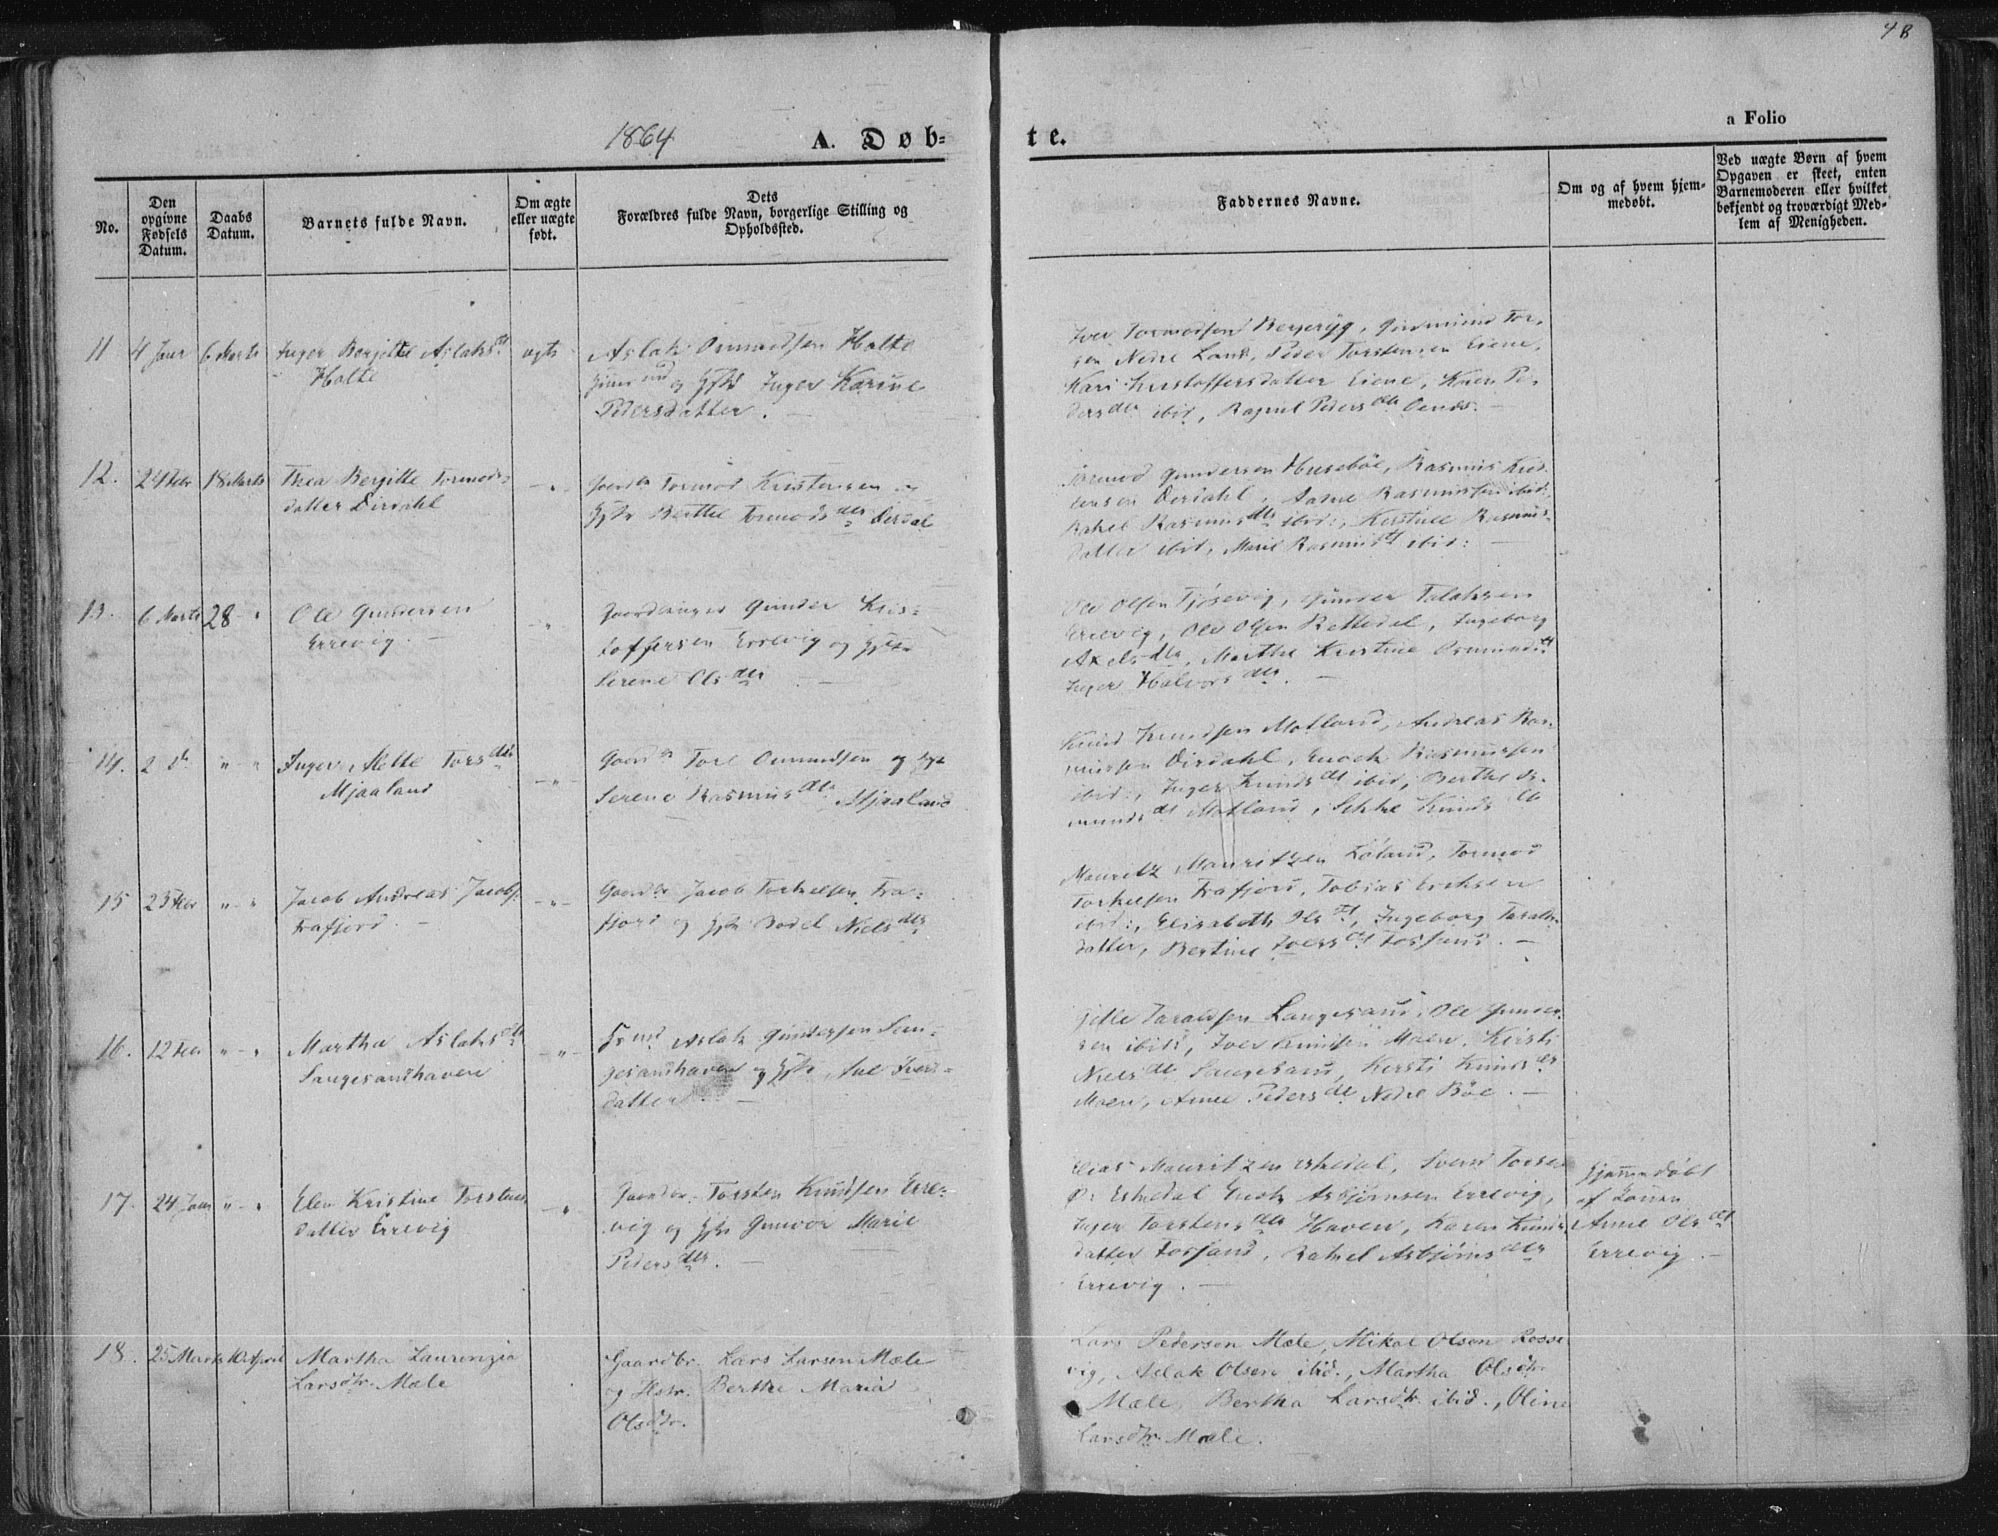 48
a Folio
1864
A. Døb-
te.
No.
Den
opgivne
Fødsels
Datum.
Daabs
Datum.
Barnets fulde Navn.
Om ægte
eller uægte
født.
Dets
Forældres fulde Navn, borgerlige Stilling og
Opholdssted.
Faddernes Navne.
Om og af hvem hjem-
medøbt.
Ved uægte Børn af hvem
Opgaven er skeet, enten
Barnemoderen eller hvilket
bekjendt og troværdigt Med-
lem af Menigheden.
11
4 Janr
6 Marts
Inger Bergitte Aslaksdt
Holte
ægte
Aslak Osmundsen Holte
og Hstr Inger Karine
Pedersdatter. -
Iver Tormodsen Bergeryg, Gudmund Tor-
sen Nedre Land, Peder Torstensen Eiene,
Mari Kristoffersdatter Eiene, Karen Pe-
dersdtr ibid, Ragnil Pedersdtr
12.
24 Febr
18 Marts
Thea Bergitte Tormods-
datter Dirdahl
- " -
Gaardbr Tormod Kristensen og
Hstr Berthe Tormodsdtr Dirdal
Tormod Gundersen Husebøe, Rasmus Kris-
tensen Dirdahl, Rasmussen ibid:
Rakel Rasmusdtr ibid:, Kirstine Rasmus-
datter ibid, Marie Rasmusdt ibid: -
13.
6 Marts
28 - "
Ole Gundersen
Errevig. -
- " -
Gaardbruger Gunder Kris-
toffersen Errevig og Hstr
Serene Olsdtr -
Ole Olsen Tjøsevig, Gunder Talaksen
Errevig, Ole Olsen Rettedal, Ingeborg
Axelsdtr, Marthe Kristine Osmundsdt
Inger Halvorsdtr. -
14.
2 do
" - "
Inger Mette Torsdtr
Mjaaland
- " -
Gaardbr Tore Osmundsen og Hstr
Serene Rasmusdtr Mjaaland
Knud Knudsen Motland, Andreas Ras-
mussen Dirdahl, Enoch Rasmussen
ibid:, Inger Knudsdt ibid, Berthe Os-
mundsdt Motland, Knudsdtr
15
23 Febr
" - "
Jacob Andreas Jacobs.
Frafjord. -
- " -
Gaardbr Jacob Torkelsen Fra-
fjord og Hstr Bodel Nielsdtr
Mauritz Mauritzen Løland, Tormod
Torkelsen Frafjord, Tobias Eriksen
ibid:, Elisabeth Olsdt, Ingeborg Taralds-
datter, Bertine Iversdt Fossand. -
16.
12 Febr
" - "
Martha Aslaksdtr
Langesandhaven
- " -
Aslak Gundersen Lan-
gesandhaven og Hstr Ane Ivers-
datter. -
Taraldsen Langesand, Ole Gunder-
sen ibid, Iver Knudsen Moen, Kirsti
Nielsdtr Langesand, Kersti Knudsdtr
Moen, Anne Pedersdtr Nedre Bøe. -
17.
24 Janr
" - "
Elen Kristine Torstens-
datter Errevig
- " -
Gaardbr. Torsten Knudsen Erre-
vig og Hstr Gunvor Marie
Pedersdtr. -
Elias Mauritzen Eskedal, Svend Torsen
Eskedal Asbjørnsen Errevig,
Inger Torstensdtr Haven, Karen Knuds-
datter Fossand, Rakel Asbjørnsdtr
Errevig. -
Hjemmedøbt
af
Anne Olsdt
Errevig. -
18.
25 Marts
10 April
Martha Laurenzia
Larsdtr. Mæle
Gaardbr. Lars Larsen Mæle
og Hstr. Berthe Maria
Olsdtr.
Lars Pedersen Mæle, Mikal Olsen Rosse-
vig, Aslak Olsen ibid., Martha Olsdtr.
Mæle, Bertha Larsdtr. ibid., Oline
Larsdtr. Mæle.